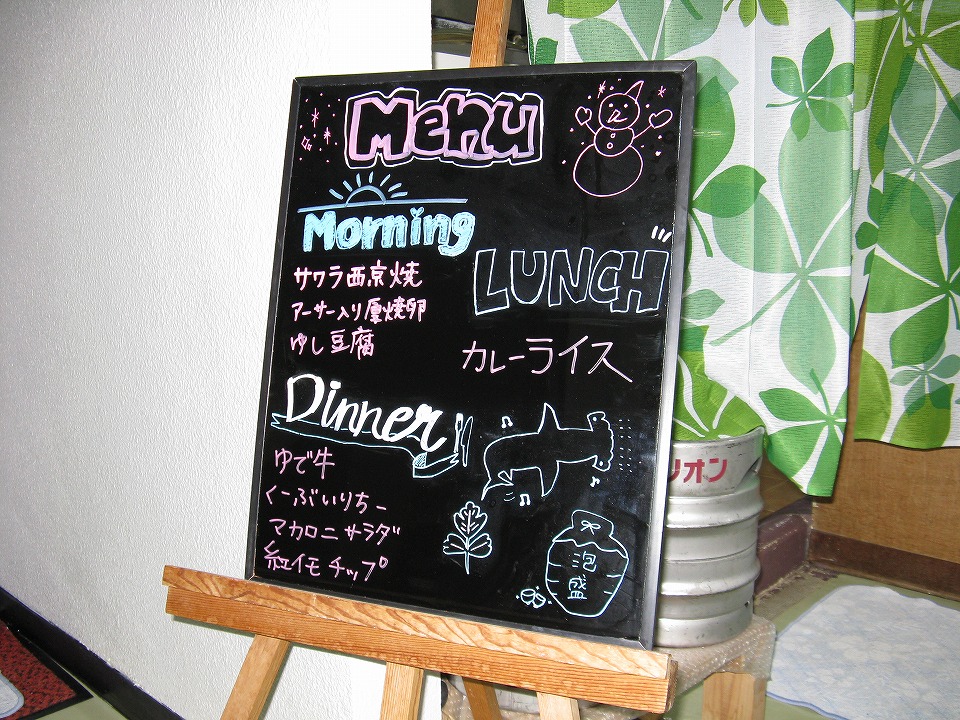 Menu
Morning
サワラ西京焼
アーサー入り厚焼卵
ゆし豆腐
LUNCH
カレーライス
Dinner
ゆで牛
くーぶいりちー
マカロニサラダ
紅イモチップ
泡盛
リオン